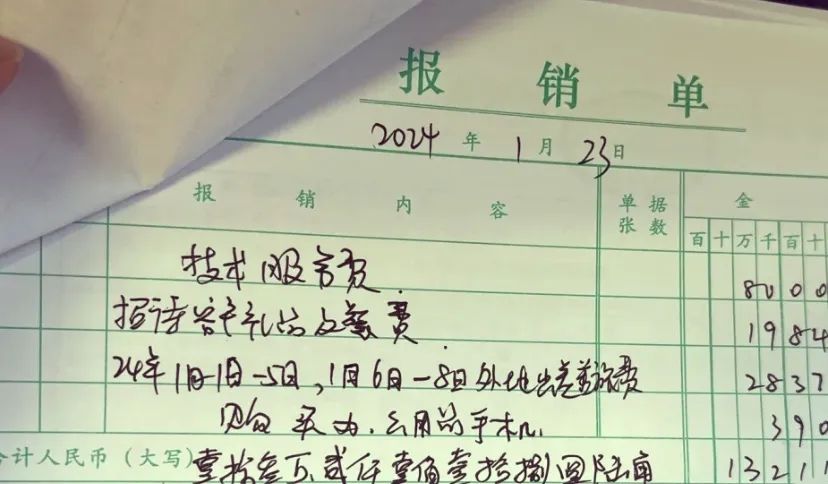 报销单
2024年1月23日
报销内容 单据张数 金
百十万千百十
技术服务费 8000
招待客户礼品及餐费 1984
24年1月1日-5日,1月6日-8日外地出差旅费 2837
购买办公用品手机 390
合计人民币(大写)壹拾叁万贰仟壹佰壹拾捌圆陆角 13211